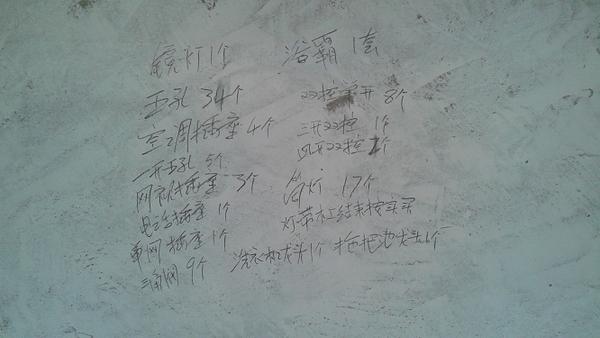 镜灯1个 浴霸1套
五孔 34个 双控单开 8个
空调插座 4个 三开双控 1个
一开五孔 5个 四开双控 1个
网视插座 3个 筒灯 17个
电话插座 1个 灯带杠结束按实买
单网插座 1个 洗衣机龙头1个 拖把池龙头1个
三角阀 9个